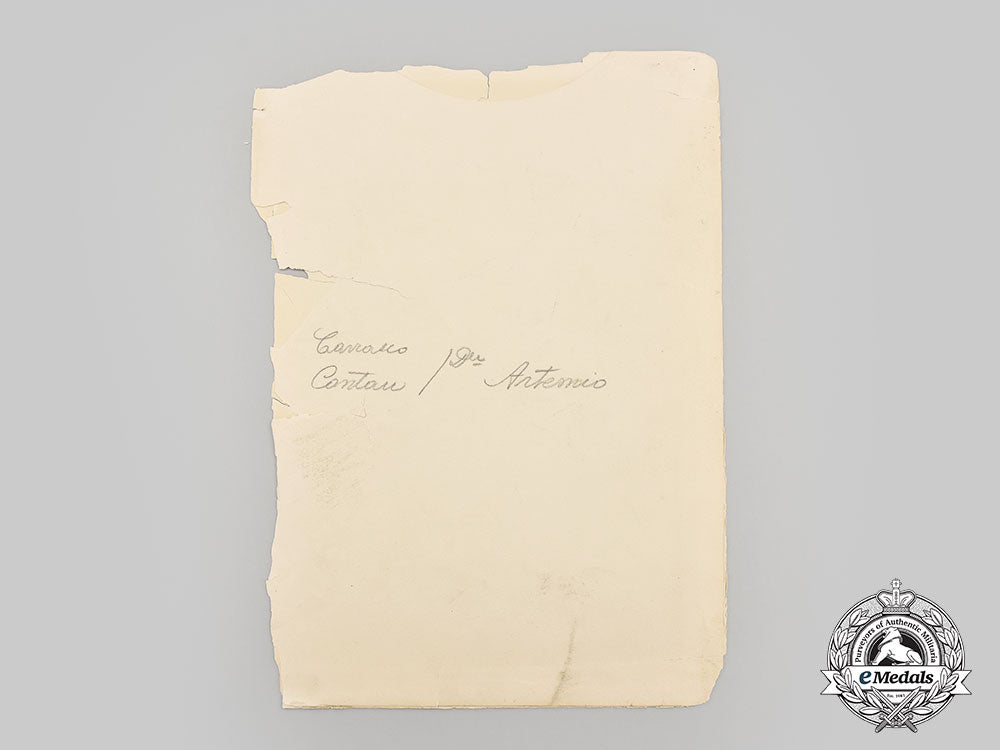 Carrasco
Cantau / Dn Artemio
Purveyors of Authentic Militaria
eMedals
Est. 1967